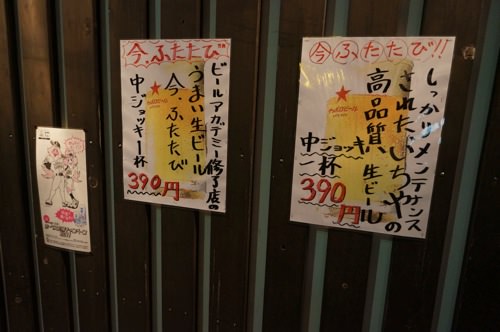 今、ふたたび!!
ビールアカデミー修了店の
うまい生ビール
今、ふたたび
中ジョッキ一杯
390円
サッポロビール
今ふたたび!!
しっかりメンテナンス
されたびちやの
高品質、生ビール
中ジョッキ一杯
390円
サッポロビール